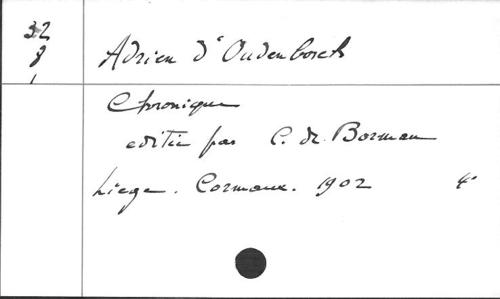 32
8
1
Adrien d'Oudenbosch
Chronique
editée par C. de Borman
Liege. Cormaux. 1902 4°